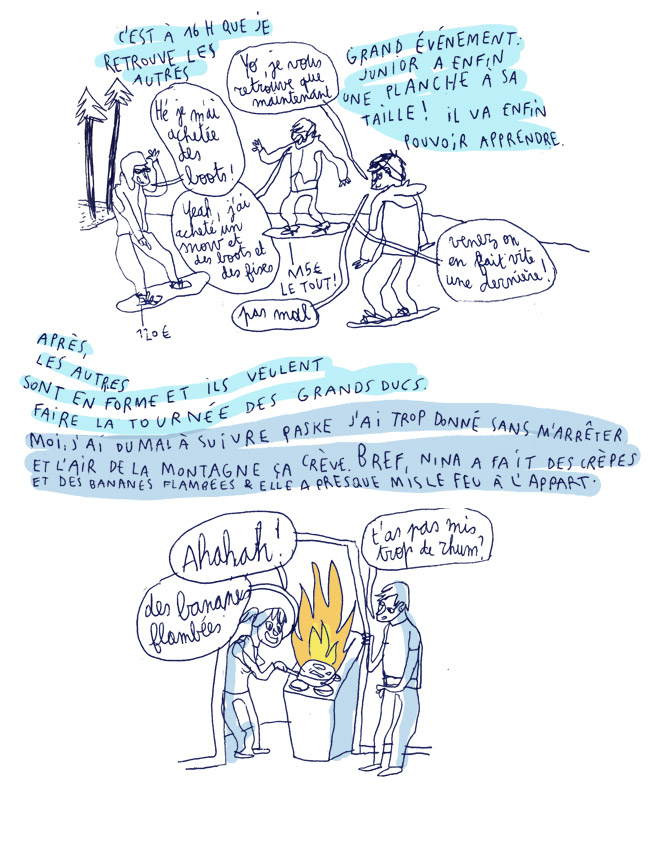 C'EST À 16H QUE JE
RETROUVE LES
AUTRES
Yo, je vous
retrouve que
maintenant
GRAND ÉVÉNEMENT:
JUNIOR A ENFIN
UNE PLANCHE À SA
TAILLE! IL VA ENFIN
POUVOIR APPRENDRE.
Hé je m'ai
achetée
des
boots!
Yeah, j'ai
acheté un
snow et
des boots et
des fixes
115€
LE TOUT!
120€
pas mal
venez on
en fait vite
une dernière!
APRÈS,
LES AUTRES
SONT EN FORME ET ILS VEULENT
FAIRE LA TOURNÉE DES GRANDS DUCS.
MOI, J'AI DU MAL À SUIVRE PASKE J'AI TROP DONNÉ SANS M'ARRÊTER
ET L'AIR DE LA MONTAGNE ÇA CRÈVE. BREF, NINA A FAIT DES CRÊPES
ET DES BANANES FLAMBÉES & ELLE A PRESQUE MIS LE FEU À L'APPART.
Ahahah!
des bananes
flambées
t'as pas mis
trop de rhum?